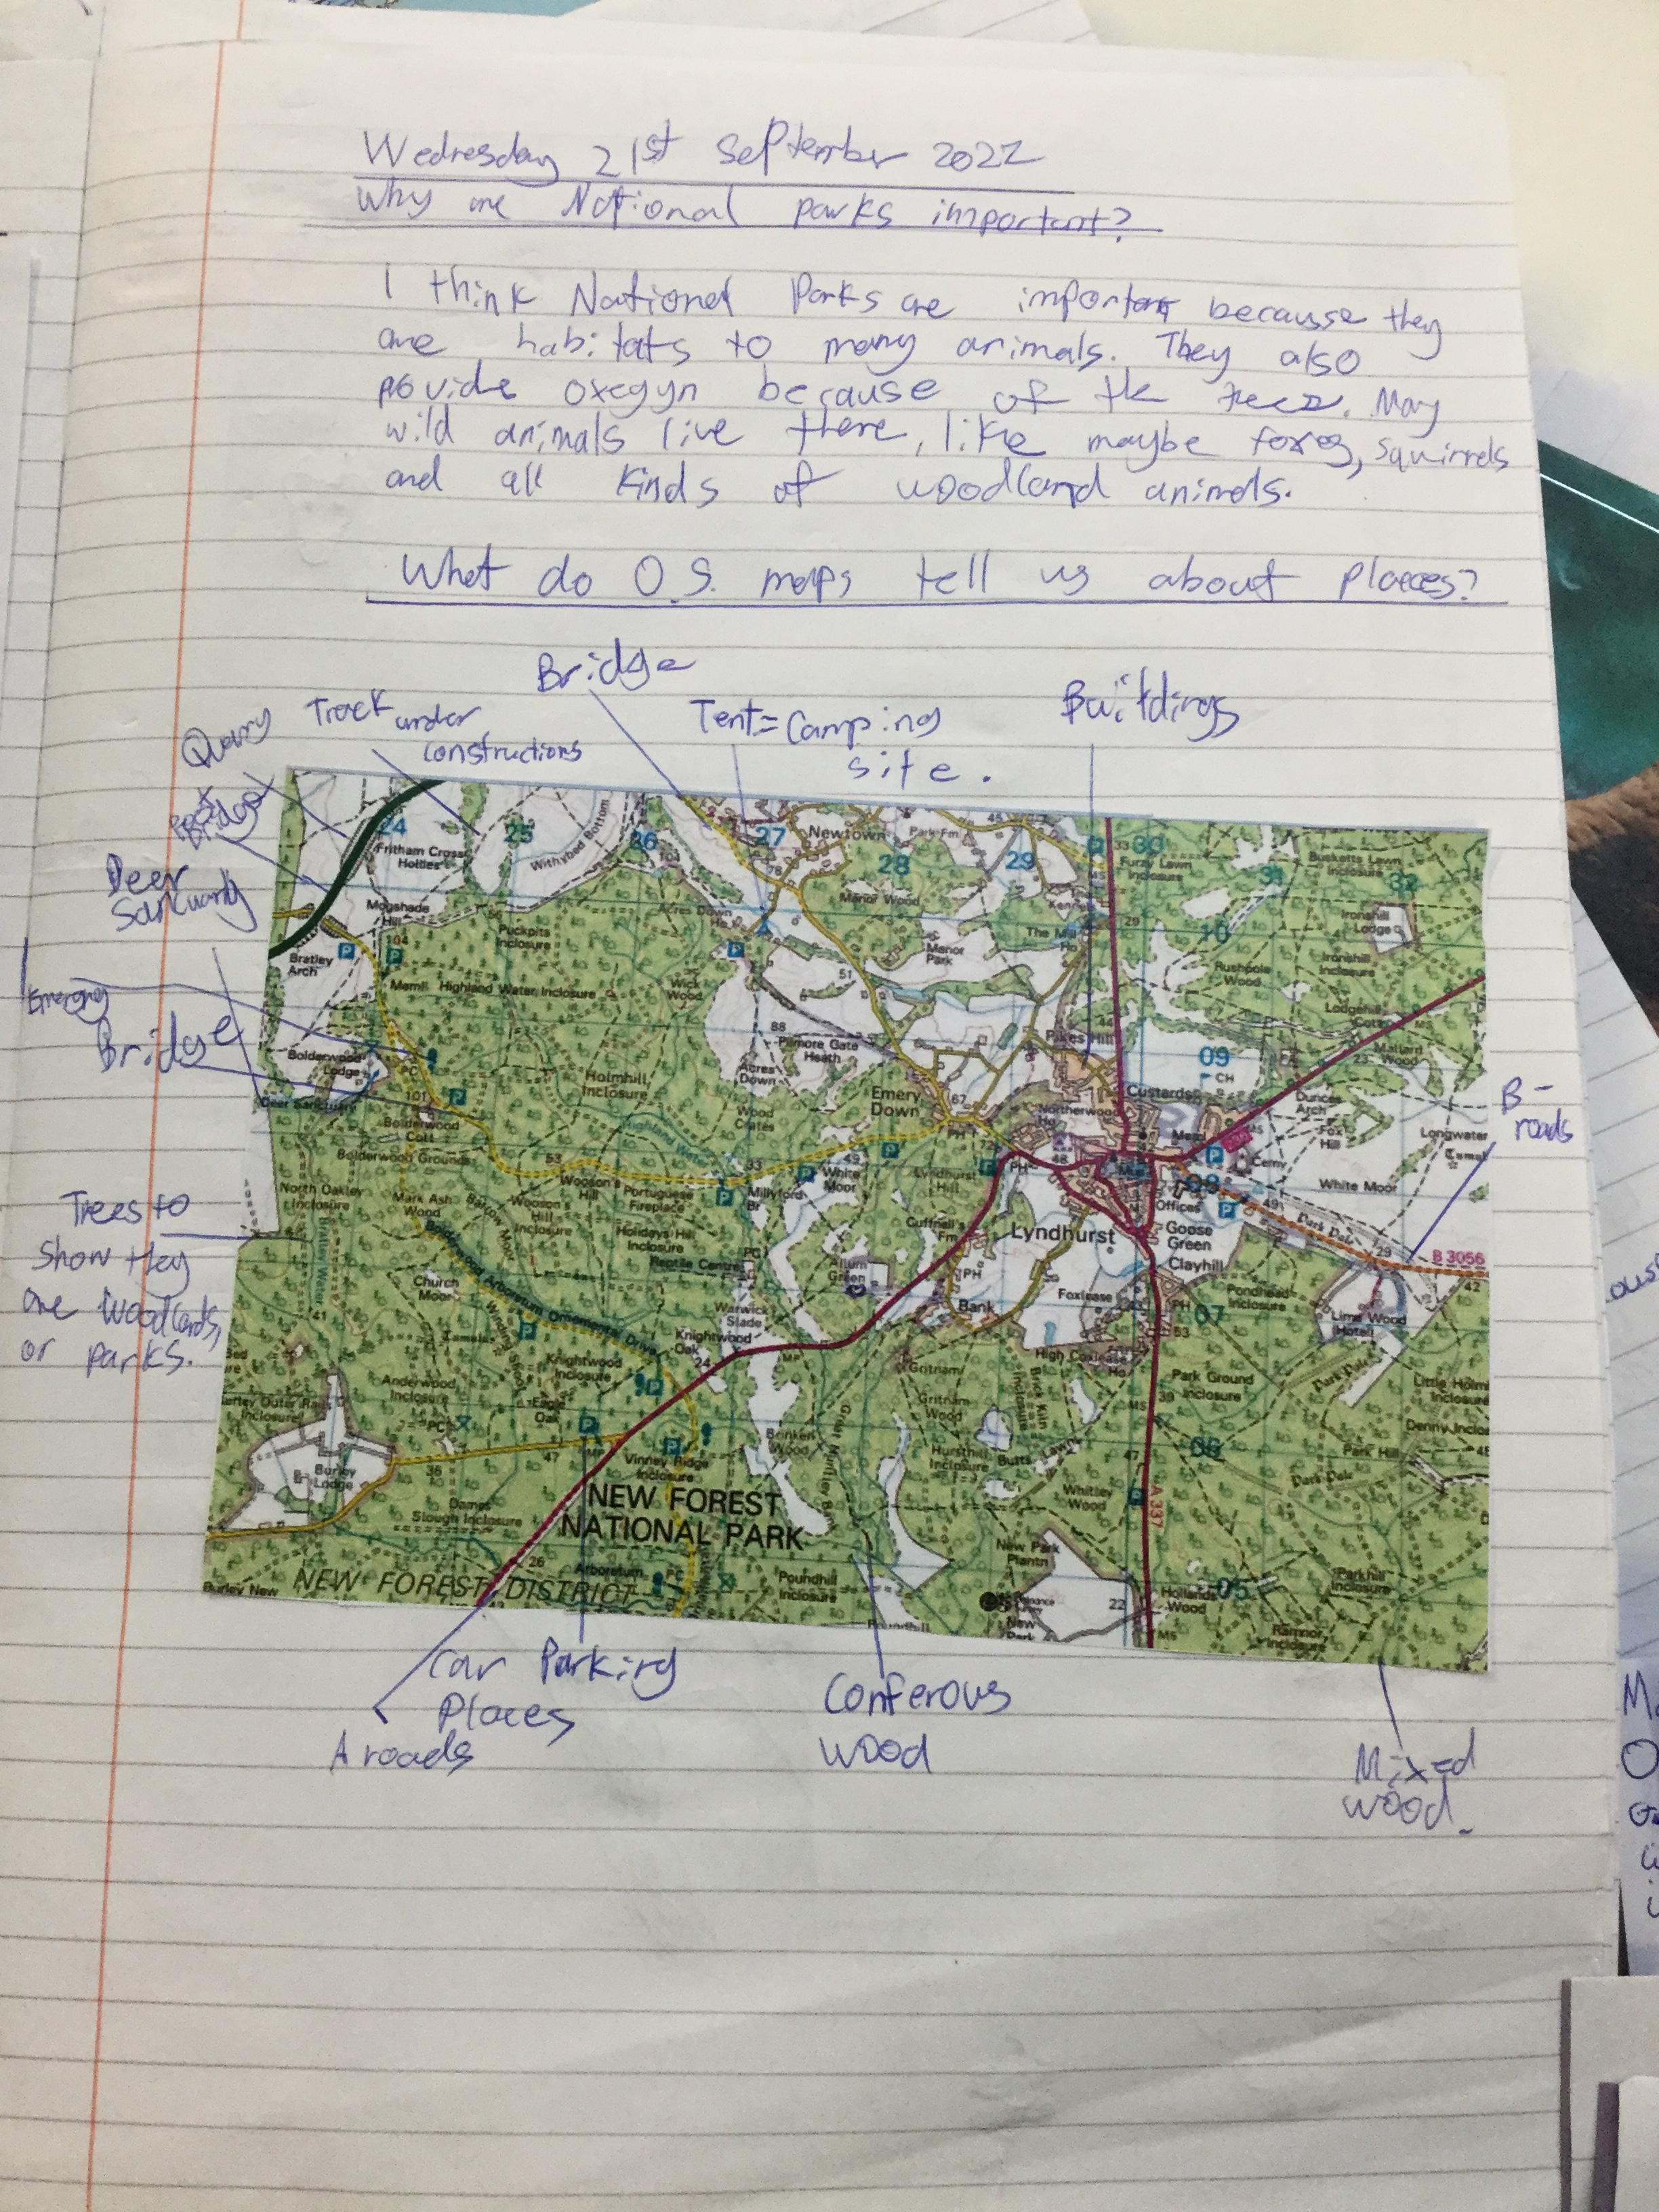 Wednesday 21st September 2022
Why are National parks important?
I think National Parks are important because they
are habitats to many animals. They also
povide oxegyn because of the trees. May
wild animals live there, like maybe foxes, squirrels
and all kinds of woodland animals.
What do O.S. maps tell us about places?
Bridge
Quarry
Track under
constructions
Tent = Camping
site.
Buildings
Bridge
Deer
Sanctuary
Emergency
Bridge
Trees to
show they
are woodlands,
or parks.
B-
roads
Car Parking
Places
A roads
Conferous
wood
Mixed
wood.
24
25
26
27
28
29
30
31
32
Fritham Cross
Hollies
Withybed Bottom
Newtown
Park Fm
Furzy Lawn
Inclosure
Busketts Lawn
Inclosure
Mogshade
Hill
Puckpits
Inclosure
Acres Down
Ho
Manor Wood
Manor
Park
The Mill
Ho
10
Ironshill
Lodge
Ironshill
Inclosure
Rushpole
Wood
Bratley
Arch
Meml
Highland Water Inclosure
Wick
Wood
Pilmore Gate
Heath
Acres
Down
Pikes Hill
09
CH
Mallard
Wood
Bolderwood
Lodge
Deer Sanctuary
Holmhill
Inclosure
Wood
Crates
Emery
Down
Northerwood
Ho
Custards
Dunces
Arch
Fox
Hill
Longwater
Bolderwood
Cott
Bolderwood Grounds
Highland Water
Cemy
White Moor
North Oakley
Inclosure
Mark Ash
Wood
Barrow Moor
Wooson's
Hill
Inclosure
Wooson's
Hill
Portuguese
Fireplace
Holidays Hill
Inclosure
Reptile Centre
Millyford
Br
White
Moor
Lyndhurst
Hill
PH
08
Offices
Goose
Green
Clayhill
Park Pale
B 3056
Lyndhurst
Cuffnell's
Fm
Allum
Green
Bank
PH
Foxlease
07
Pondhead
Inclosure
Lime Wood
(Hotel)
Church
Moor
Bolderwood Arboretum Ornamental Drive
Warwick
Slade
Knightwood
Oak
Knightwood
Inclosure
Eagle
Oak
Anderwood
Inclosure
High Coxlease
Ho
Gritnam
Gritnam
Wood
Brick Kiln
Inclosure
Park Ground
Inclosure
Park Pale
Burley Outer Rails
Inclosure
Burley
Lodge
Dames
Slough Inclosure
Vinney Ridge
Inclosure
Brinken
Wood
Hursthill
Inclosure
Butts Lawn
Whitley
Wood
06
Park Hill
Park Pale
A 337
NEW FOREST
NATIONAL PARK
NEW FOREST DISTRICT
Arboretum
Poundhill
Inclosure
New Park
Plantn
New
Park
Hollands
Wood
05
Parkhill
Inclosure
Ramnor
Inclosure
Burley New